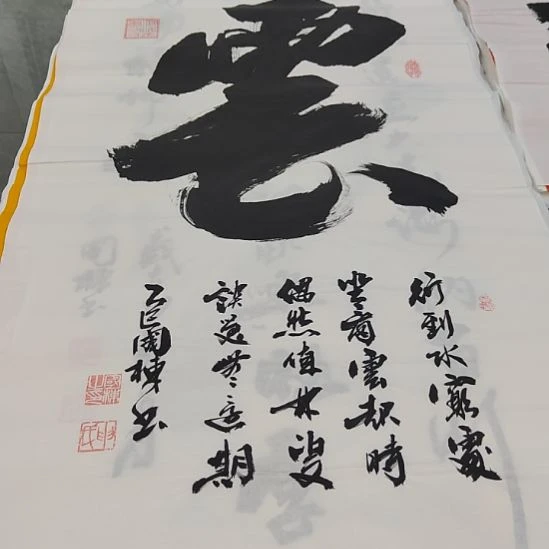 雲
行到水窮處
坐看雲起時
偶然值林叟
談笑無還期
乙巳國棟书